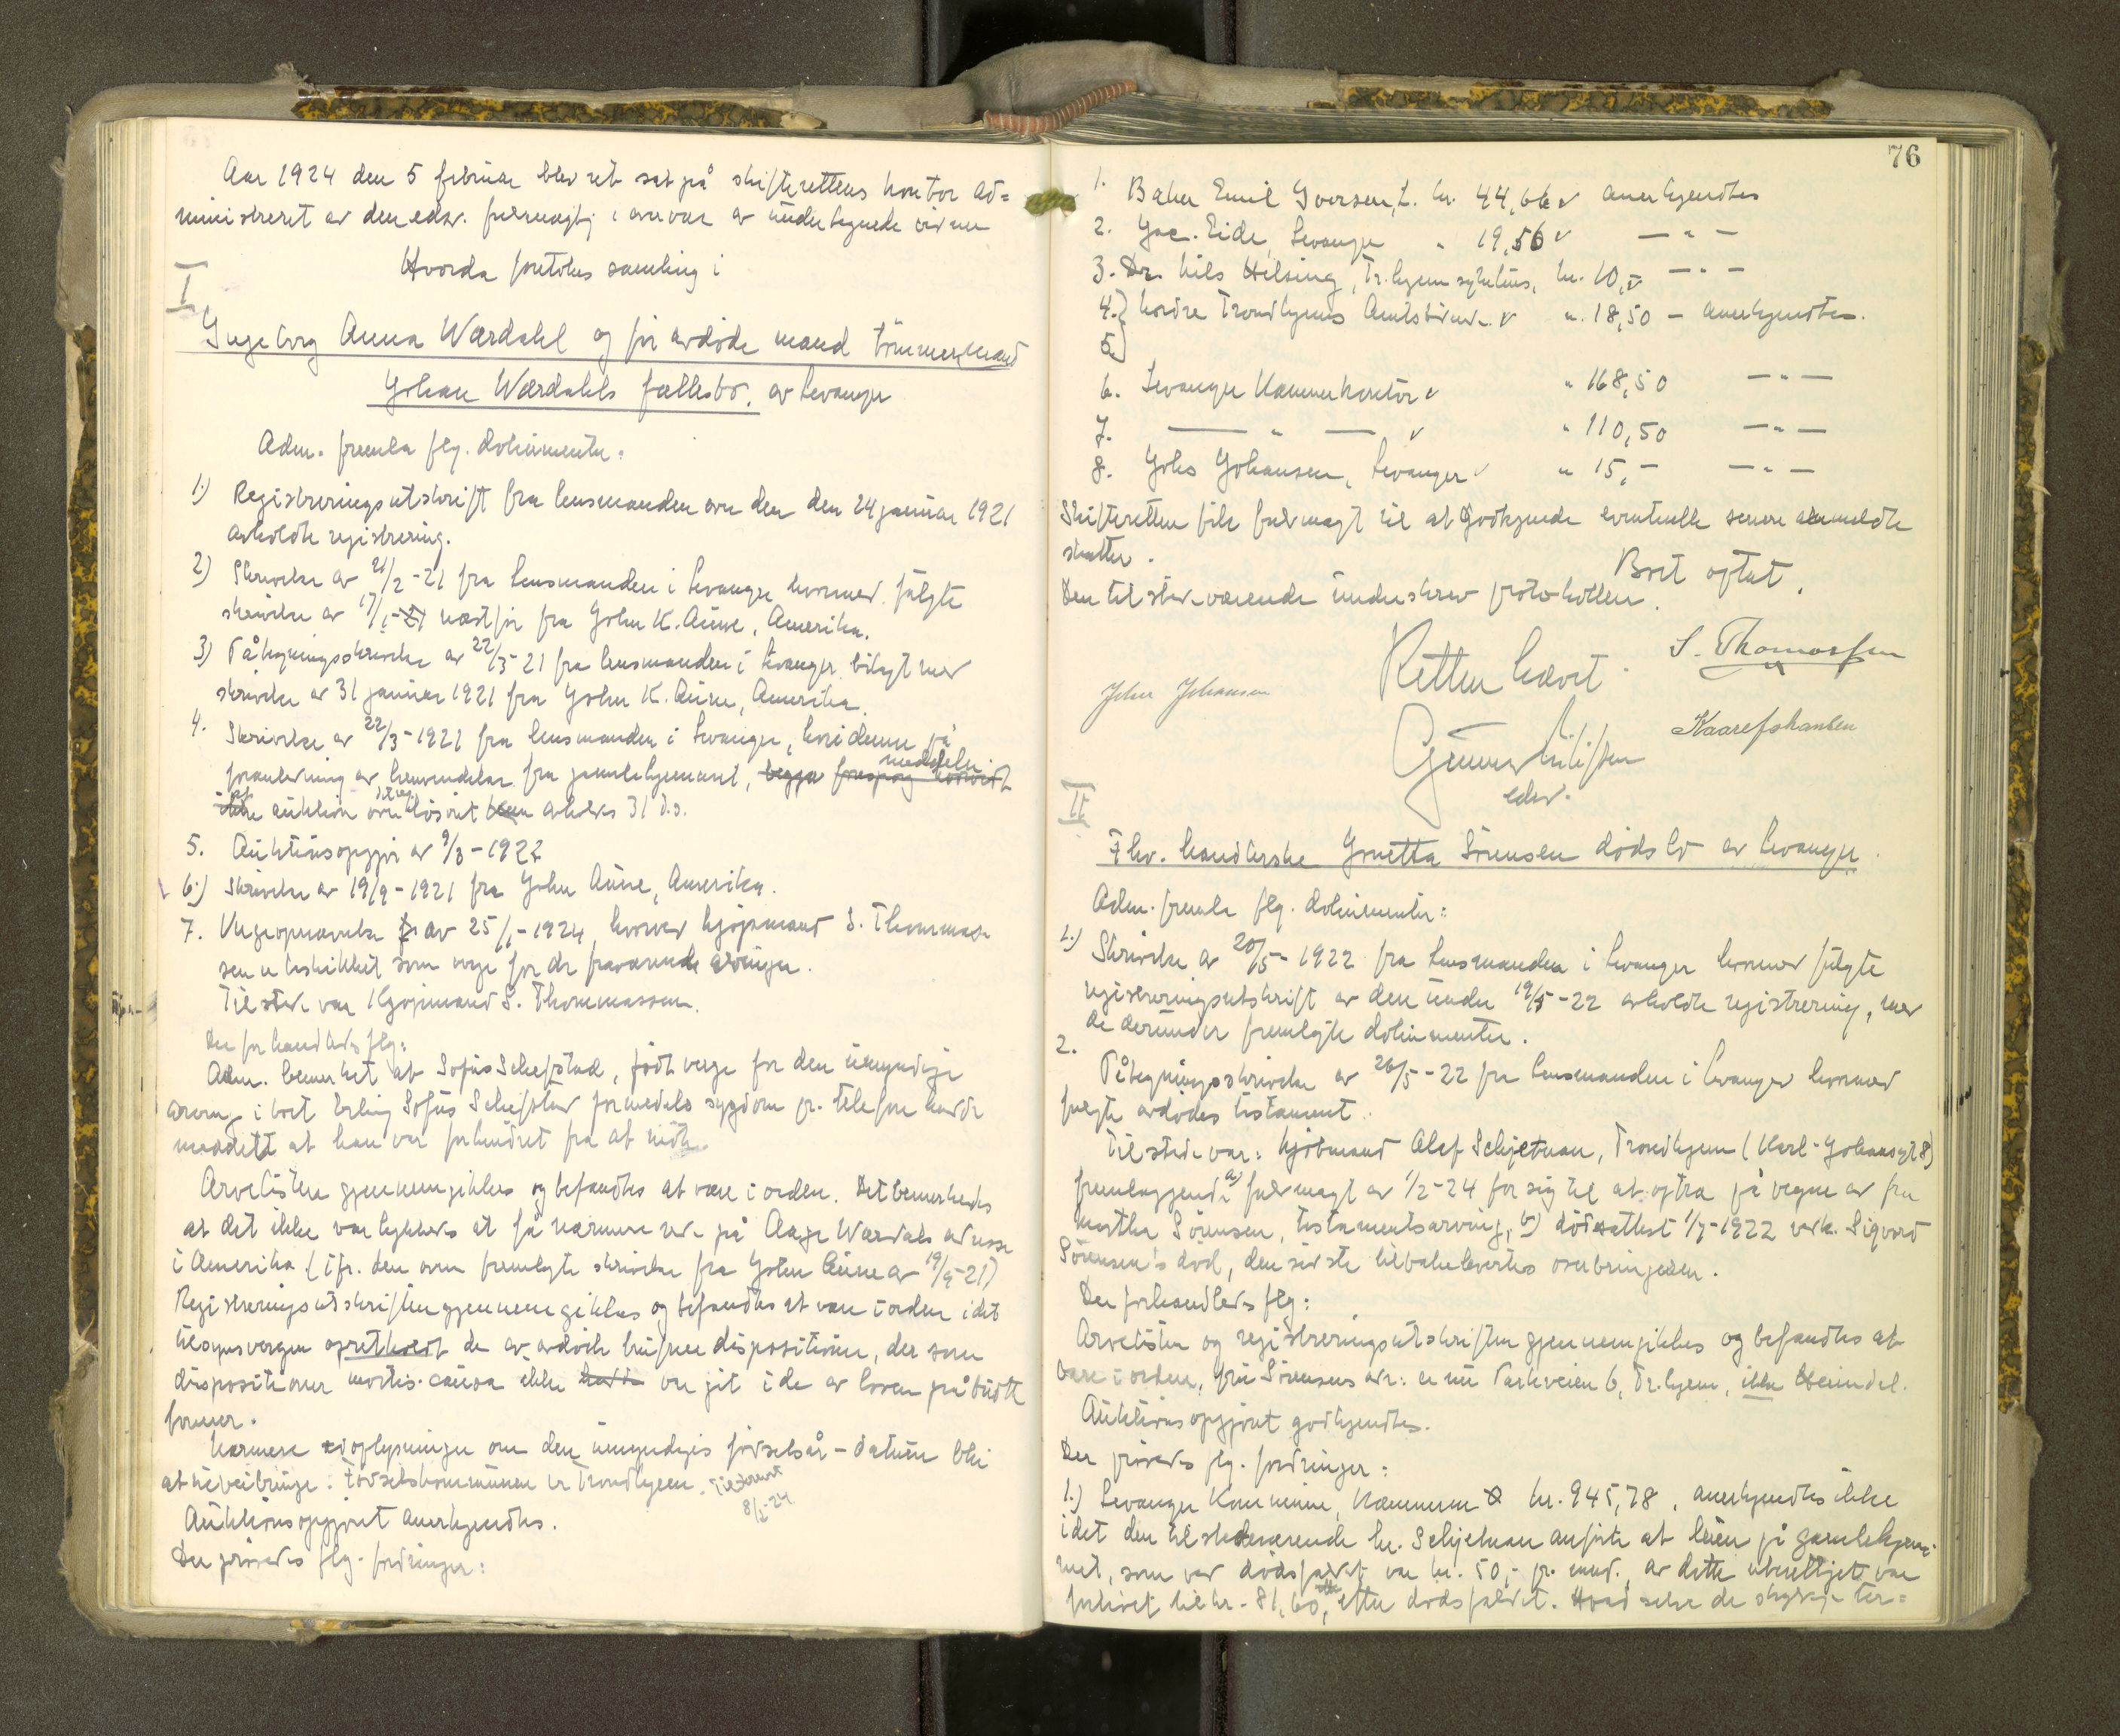 Aar 1924 den 5 februar blev ret sat på skifterettens kontor ad=
ministreret av den edsv. fuldmægtig i overvær av undertegnede vidner
Hvorda foretokes samling i
I
Ingeborg Anna Værdahl og før avdøde mand tømmermand
Johan Værdahls fællesbo. av Levanger
Adm. fremla flg. dokumenter:
1.) Registreringsutskrift fra lensmanden over den den 24 januar 1921
avholdte registrering.
2) Skrivelse av 21/2-21 fra lensmanden i Levanger hvormed fulgte
skrivelse av 17/1-21 næstfør fra John K. Aune, Amerika.
3) Påtegningsskrivelse av 22/3-21 fra lensmanden i Levanger bilagt med
skrivelse av 31 januar 1921 fra John K. Aune, Amerika.
4. Skrivelse av 22/3-1921 fra lensmanden i Levanger, hvori denne på
foranledning av henvendelse fra gamlehjemmet, meddeler
at auktion over løsøret avholdes 31 d.s.
5. Auktionsopgjør av 9/3-1922
6.) Skrivelse av 19/9-1921 fra John Aune, Amerika.
7. Vergeopnævnelse av 25/1-1924, hvorved kjøpmand S. Thommas=
sen er beskikket som verge for de fraværende arvinger.
Tilstede var Kjøpmand S. Thommassen.
Der forhandledes flg:
Adm. bemerket at Sofus Schefstad, født verge for den umyndige
arving i boet Erling Sofus Schefstad formedels sygdom pr. telefon havde
meddelt at han var forhindret fra at møte.
Arvelisten gjennemgikkes og befandtes at være i orden. Det bemerkedes
at det ikke var lykkedes at få nærmere rede på Aage Værdals adresse
i Amerika (jfr. den oven fremlagte skrivelse fra John Aune av 19/9-21)
Registreringsutskriften gjennemgikkes og befandtes at være i orden idet
tilsynsvergen opretholdt de av avdøde trufne dispositioner, der som
dispositioner mortis causa ikke var git i de av loven påbudte
former.
Nærmere oplysninger om den umyndiges fødselsår - datum blir
at tilveiebringe. Fødselskommunen er Trondhjem. Tilskrevet
8/2-24
Auktionsopgjøret anerkjendtes.
Der prøvedes flg. fordringer:
76
1. Baker Emil Iversen, L. kr. 44,66 v anerkjendtes
2. Jac. Eide, Levanger " 19,56 v — " —
3. Dr. Nils Hilsing, Tr.hjem sykehus, kr. 10,- v — " —
4.) Nordre Trondhjems Amtstidende v " 18,50 - anerkjendtes.
5.)
6. Levanger Kæmnerkontor v " 168,50 — " —
7. — " — v " 110,50 — " —
8. Johs Johansen, Levanger v " 15,- — " —
Skifteretten fik fuldmagt til at godkjende eventuelle senere anmeldte
skatter.
Boet optat.
Den tilstedeværende underskrev protokollen.
Retten hævet.
S. Thomassen
John Johansen
Kaare Johansen
Gunnar
edsv.
II
Fhv. handlerske Gonetta Sørensens dødsbo av Levanger
Adm. fremla flg. dokumenter:
1.) Skrivelse av 20/5-1922 fra lensmanden i Levanger hvormed fulgte
registreringsutskrift av den under 19/5-22 avholdte registrering, med
de derunder fremlagte dokumenter.
2. Påtegningsskrivelse av 26/5-22 fra lensmanden i Levanger hvormed
fulgte avdødes testament.
Tilstede var: Kjøbmand Olef Schjetnan, Trondhjem (Karl-Johansgt 8)
fremlæggende a) fuldmagt av 1/2-24 for sig til at optræ på vegne av fru
Martha Sørensen, testamentsarving, b) dødsattest 1/7-1922 vedk. Sigvard
Sørensen's død, den siste tilbakelevertes overbringeren.
Der forhandledes flg:
Arvelisten og registreringsutskriften gjennemgikkes og befandtes at
være i orden, fru Sørensens adr: er nu Parkveien 6, Tr.hjem, ikke Heimdal.
Auktionsopgjøret godkjendtes.
Der prøvedes flg. fordringer:
1.) Levanger Kommune, Kæmneren kr. 945,78, anerkjendtes ikke
idet den tilstedeværende hr. Schjetnan anførte at leien på gamlehjem=
met, som ved dødsfaldet var kr. 50,- pr. mnd., av dette uberettiget var
forhøiet til kr. 81,60, efter dødsfaldet. Hvad selve de skyldige ter=